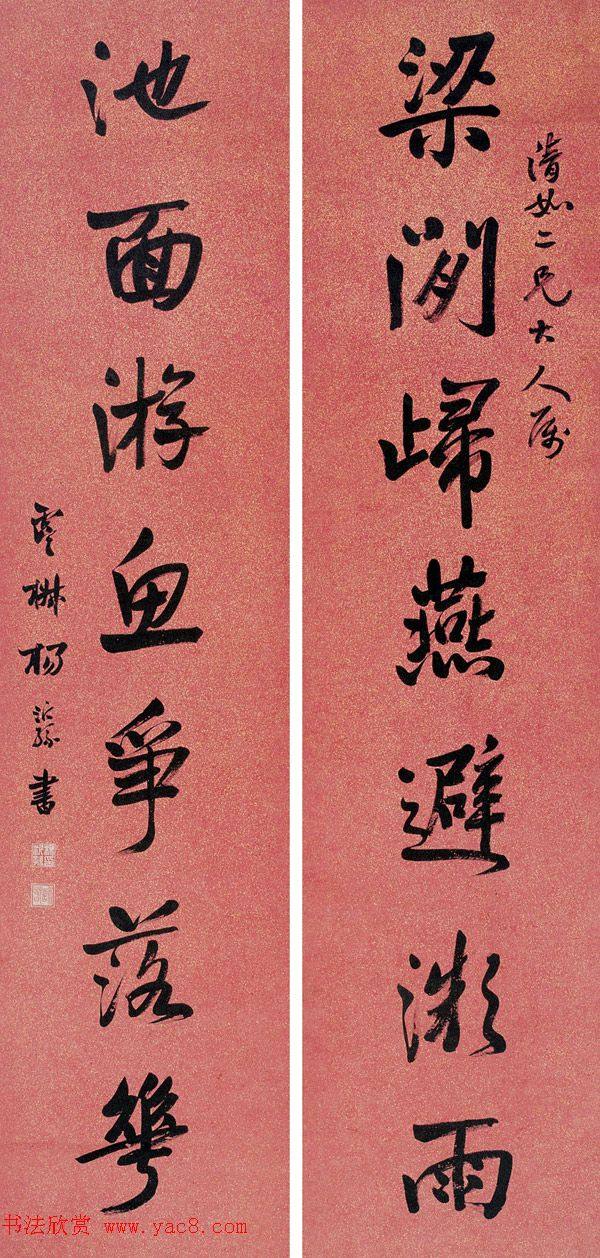 清如二兄大人属
梁間歸燕避微雨
池面游魚爭落華
楊沂孫書
书法欣赏 www.yac8.com